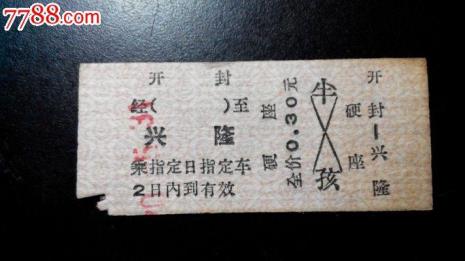 7788.com
开 封
经( )至
兴 隆
乘指定日指定车
2日内到有效
硬 座
全价0.30元
半
孩
硬 座
开封—兴隆